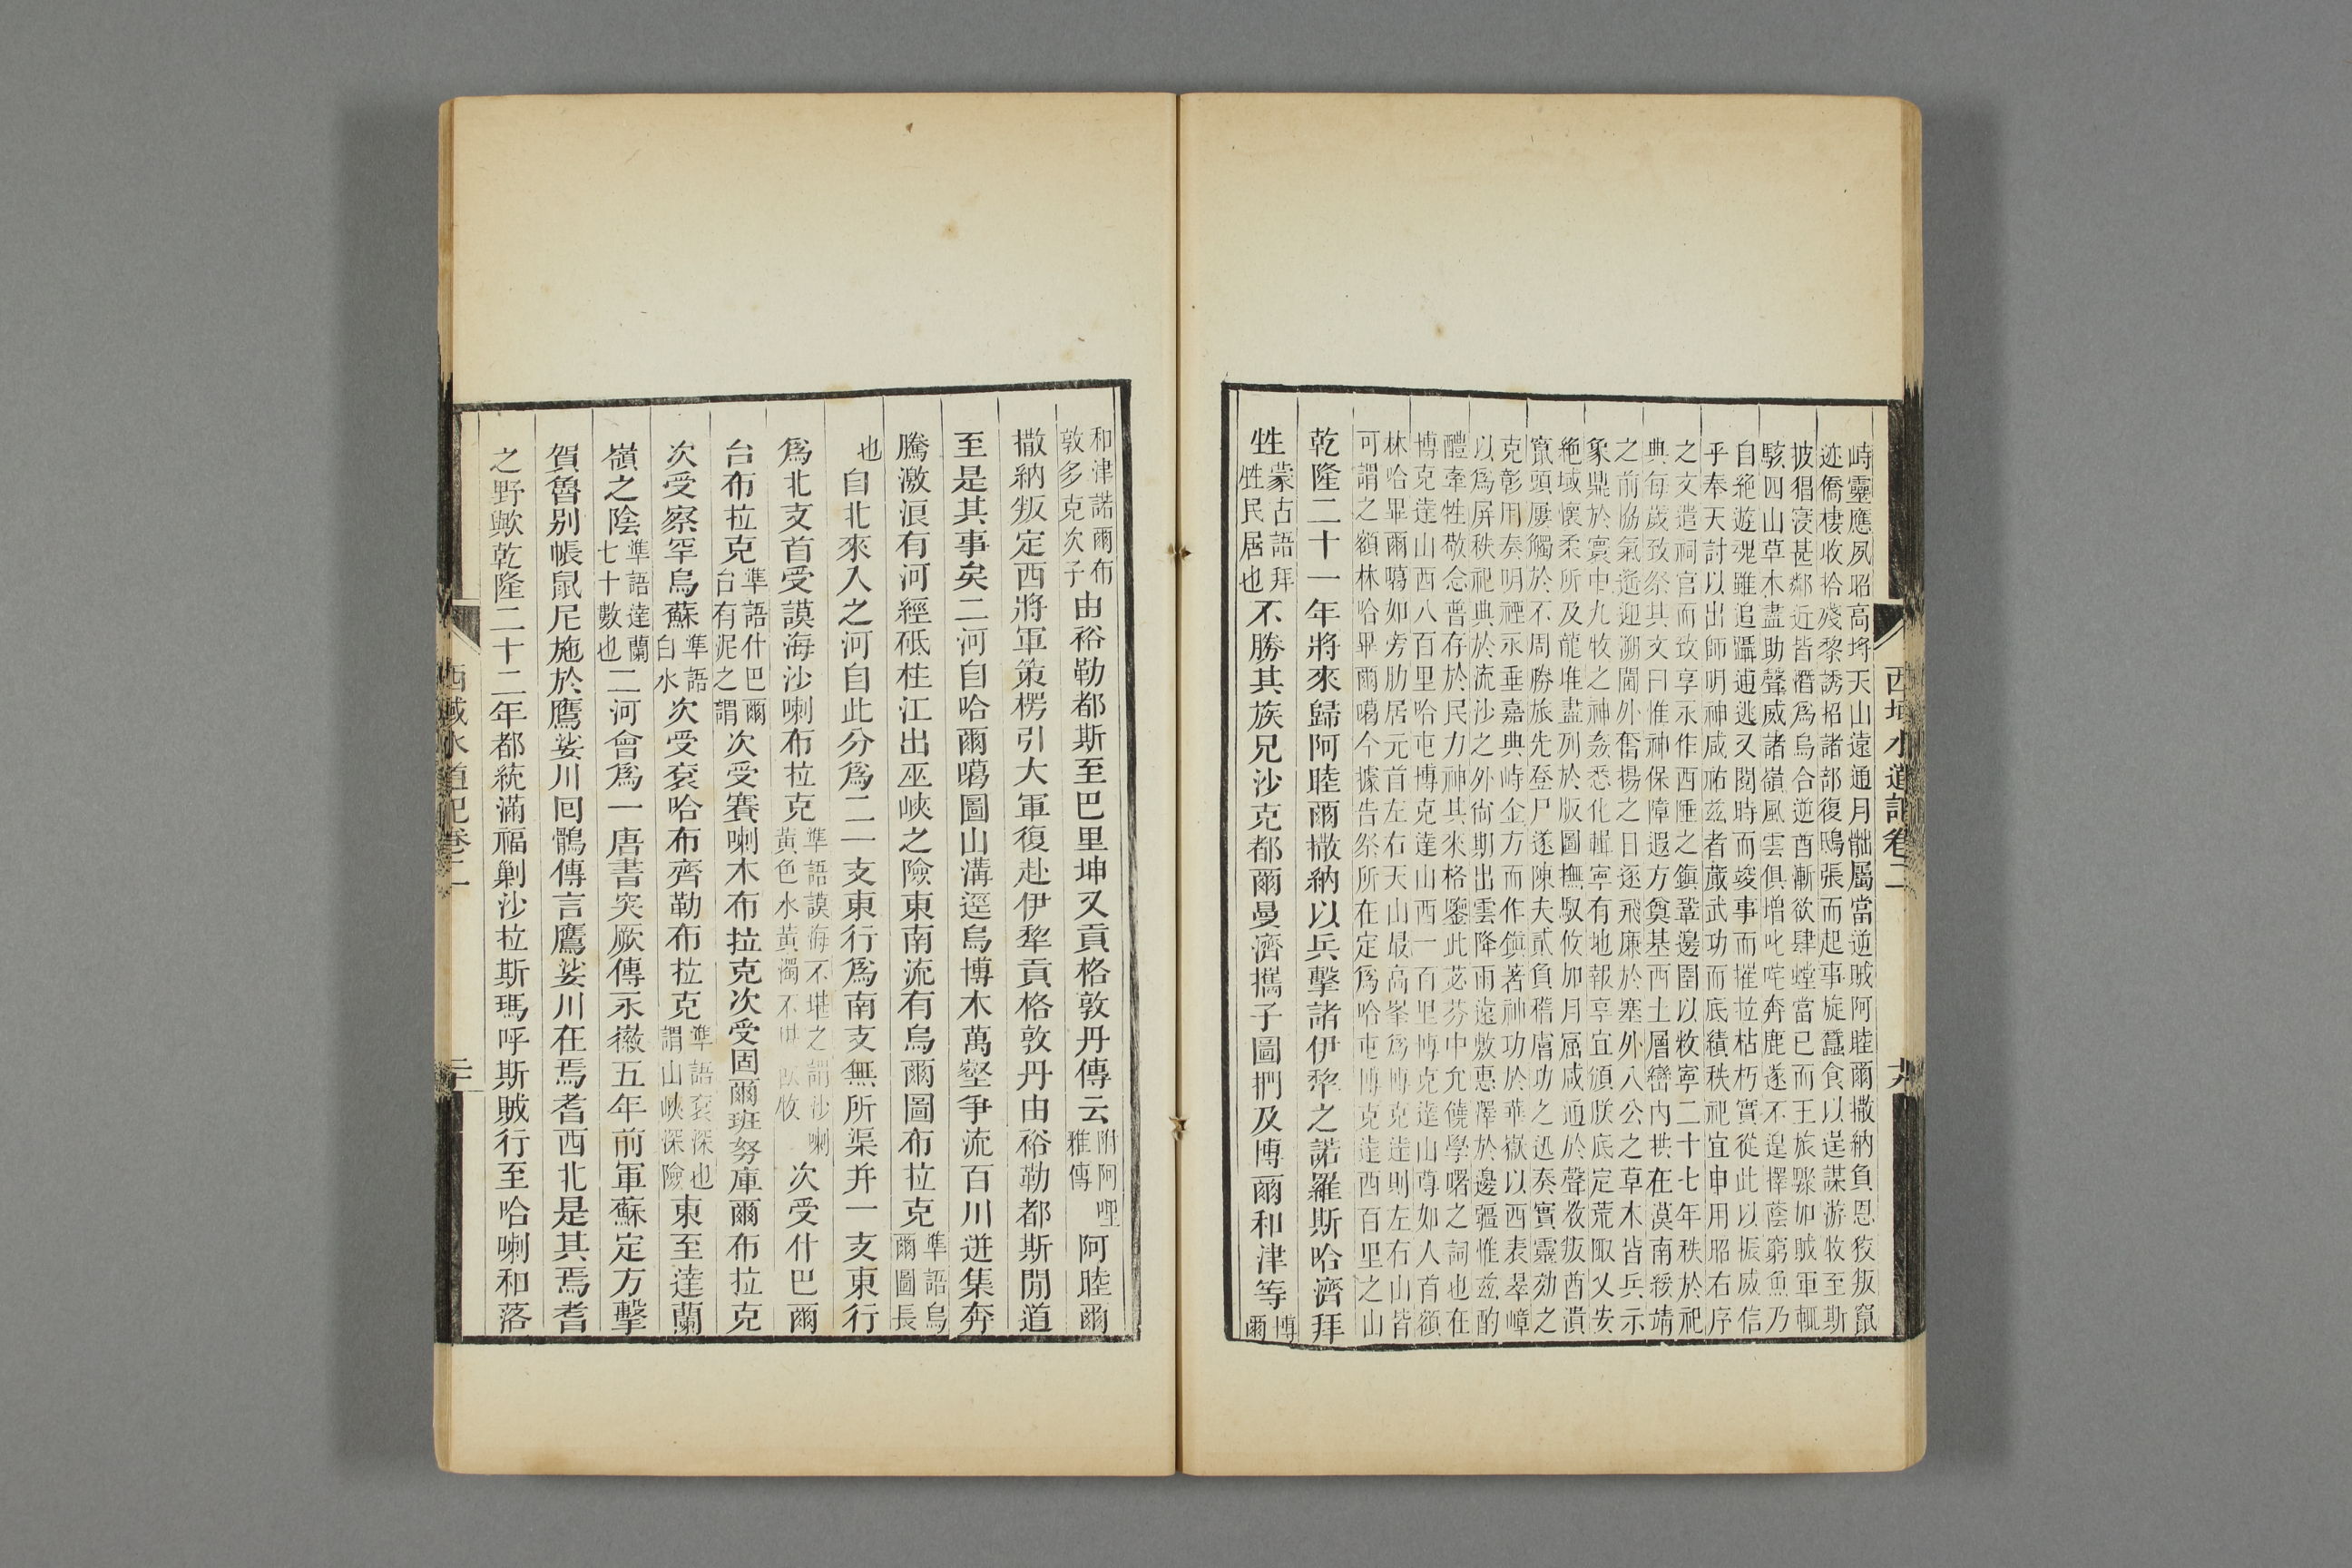 峙靈應夙昭高埒天山遠通月䶪屬當逆賊阿睦爾撒納負恩狡叛竄
迹僑棲收拾殘黎誘招諸部復鴟張而起事旋蠶食以逞謀游牧至斯
披猖寖甚鄰近皆潛爲烏合逆酋漸欲肆螳當已而王旅驟加賊軍輒
駭四山草木盡助聲威諸嶺風雲俱增叱咤奔鹿遂不遑擇蔭窮魚乃
自絶遊魂雖追躡逋逃又閱時而竣事而摧拉枯朽實從此以振威信
乎奉天討以出師明神咸祐兹者蕆武功而底績秩祀宜申用昭右序
之文遣祠官而致享永作西陲之鎭鞏邊圉以敉寧二十七年秩於祀
典每歲致祭其文曰惟神保障遐方奠基西土層巒内拱在漠南綏靖
之前協氣遙迎溯閫外奮揚之日逐飛廉於塞外八公之草木皆兵示
象鼎於寰中九牧之神姦悉化輯寧有地報享宜頒朕底定荒陬乂安
絶域懷柔所及龍堆盡列於版圖撫馭攸加月𡹔咸通於聲敎叛酋潰
竄頭屢觸於不周勝旅先登尸遂陳夫貳負稽膚功之迅奏實靈効之
克彰用奏明禋永垂嘉典峙金方而作鎭著神功於華嶽以西表崒嶂
以爲屏秩祀典於流沙之外尙期出雲降雨遠敷惠澤於邊疆惟兹酌
醴牽牲敬念普存於民力神其來格鑒此苾芬中允饒學曙之詞也在
博克達山西八百里哈屯博克達山西一百里博克達山尊如人首額
林哈畢爾噶如旁肋居元首左右天山最高峯爲博克達則左右山皆
可謂之額林哈畢爾噶今據告祭所在定爲哈屯博克達西百里之山
乾隆二十一年將來歸阿睦爾撒納以兵擊諸伊犂之諾羅斯哈濟拜
牲蒙古語拜牲民居也不勝其族兄沙克都爾曼濟攜子圖捫及博爾和津等博爾
西域水道記卷二 十九
和津諾爾布敦多克次子由裕勒都斯至巴里坤又貢格敦丹傳云附阿哩雅傳阿睦爾
撒納叛定西將軍策楞引大軍復赴伊犂貢格敦丹由裕勒都斯間道
至是其事矣二河自哈爾噶圖山溝逕烏博木萬壑爭流百川迸集奔
騰激浪有河經砥柱江出巫峽之險東南流有烏爾圖布拉克準語烏爾圖長
也自北來入之河自此分爲二一支東行爲南支無所渠并一支東行
爲北支首受謨海沙喇布拉克準語謨海不堪之謂沙喇黃色水黃濁不堪飲牧次受什巴爾
台布拉克準語什巴爾台有泥之謂次受賽喇木布拉克次受固爾班努庫爾布拉克
次受察罕烏蘇準語白水次受袞哈布齊勒布拉克準語袞深也謂山峽深險東至達蘭
嶺之陰準語達蘭七十數也二河會爲一唐書突厥傳永徽五年前軍蘇定方擊
賀魯别帳鼠尼施於鷹娑川回鶻傳言鷹娑川在焉耆西北是其焉耆
之野歟乾隆二十二年都統滿福剿沙拉斯瑪呼斯賊行至哈喇和落
西域水道記卷二 二十